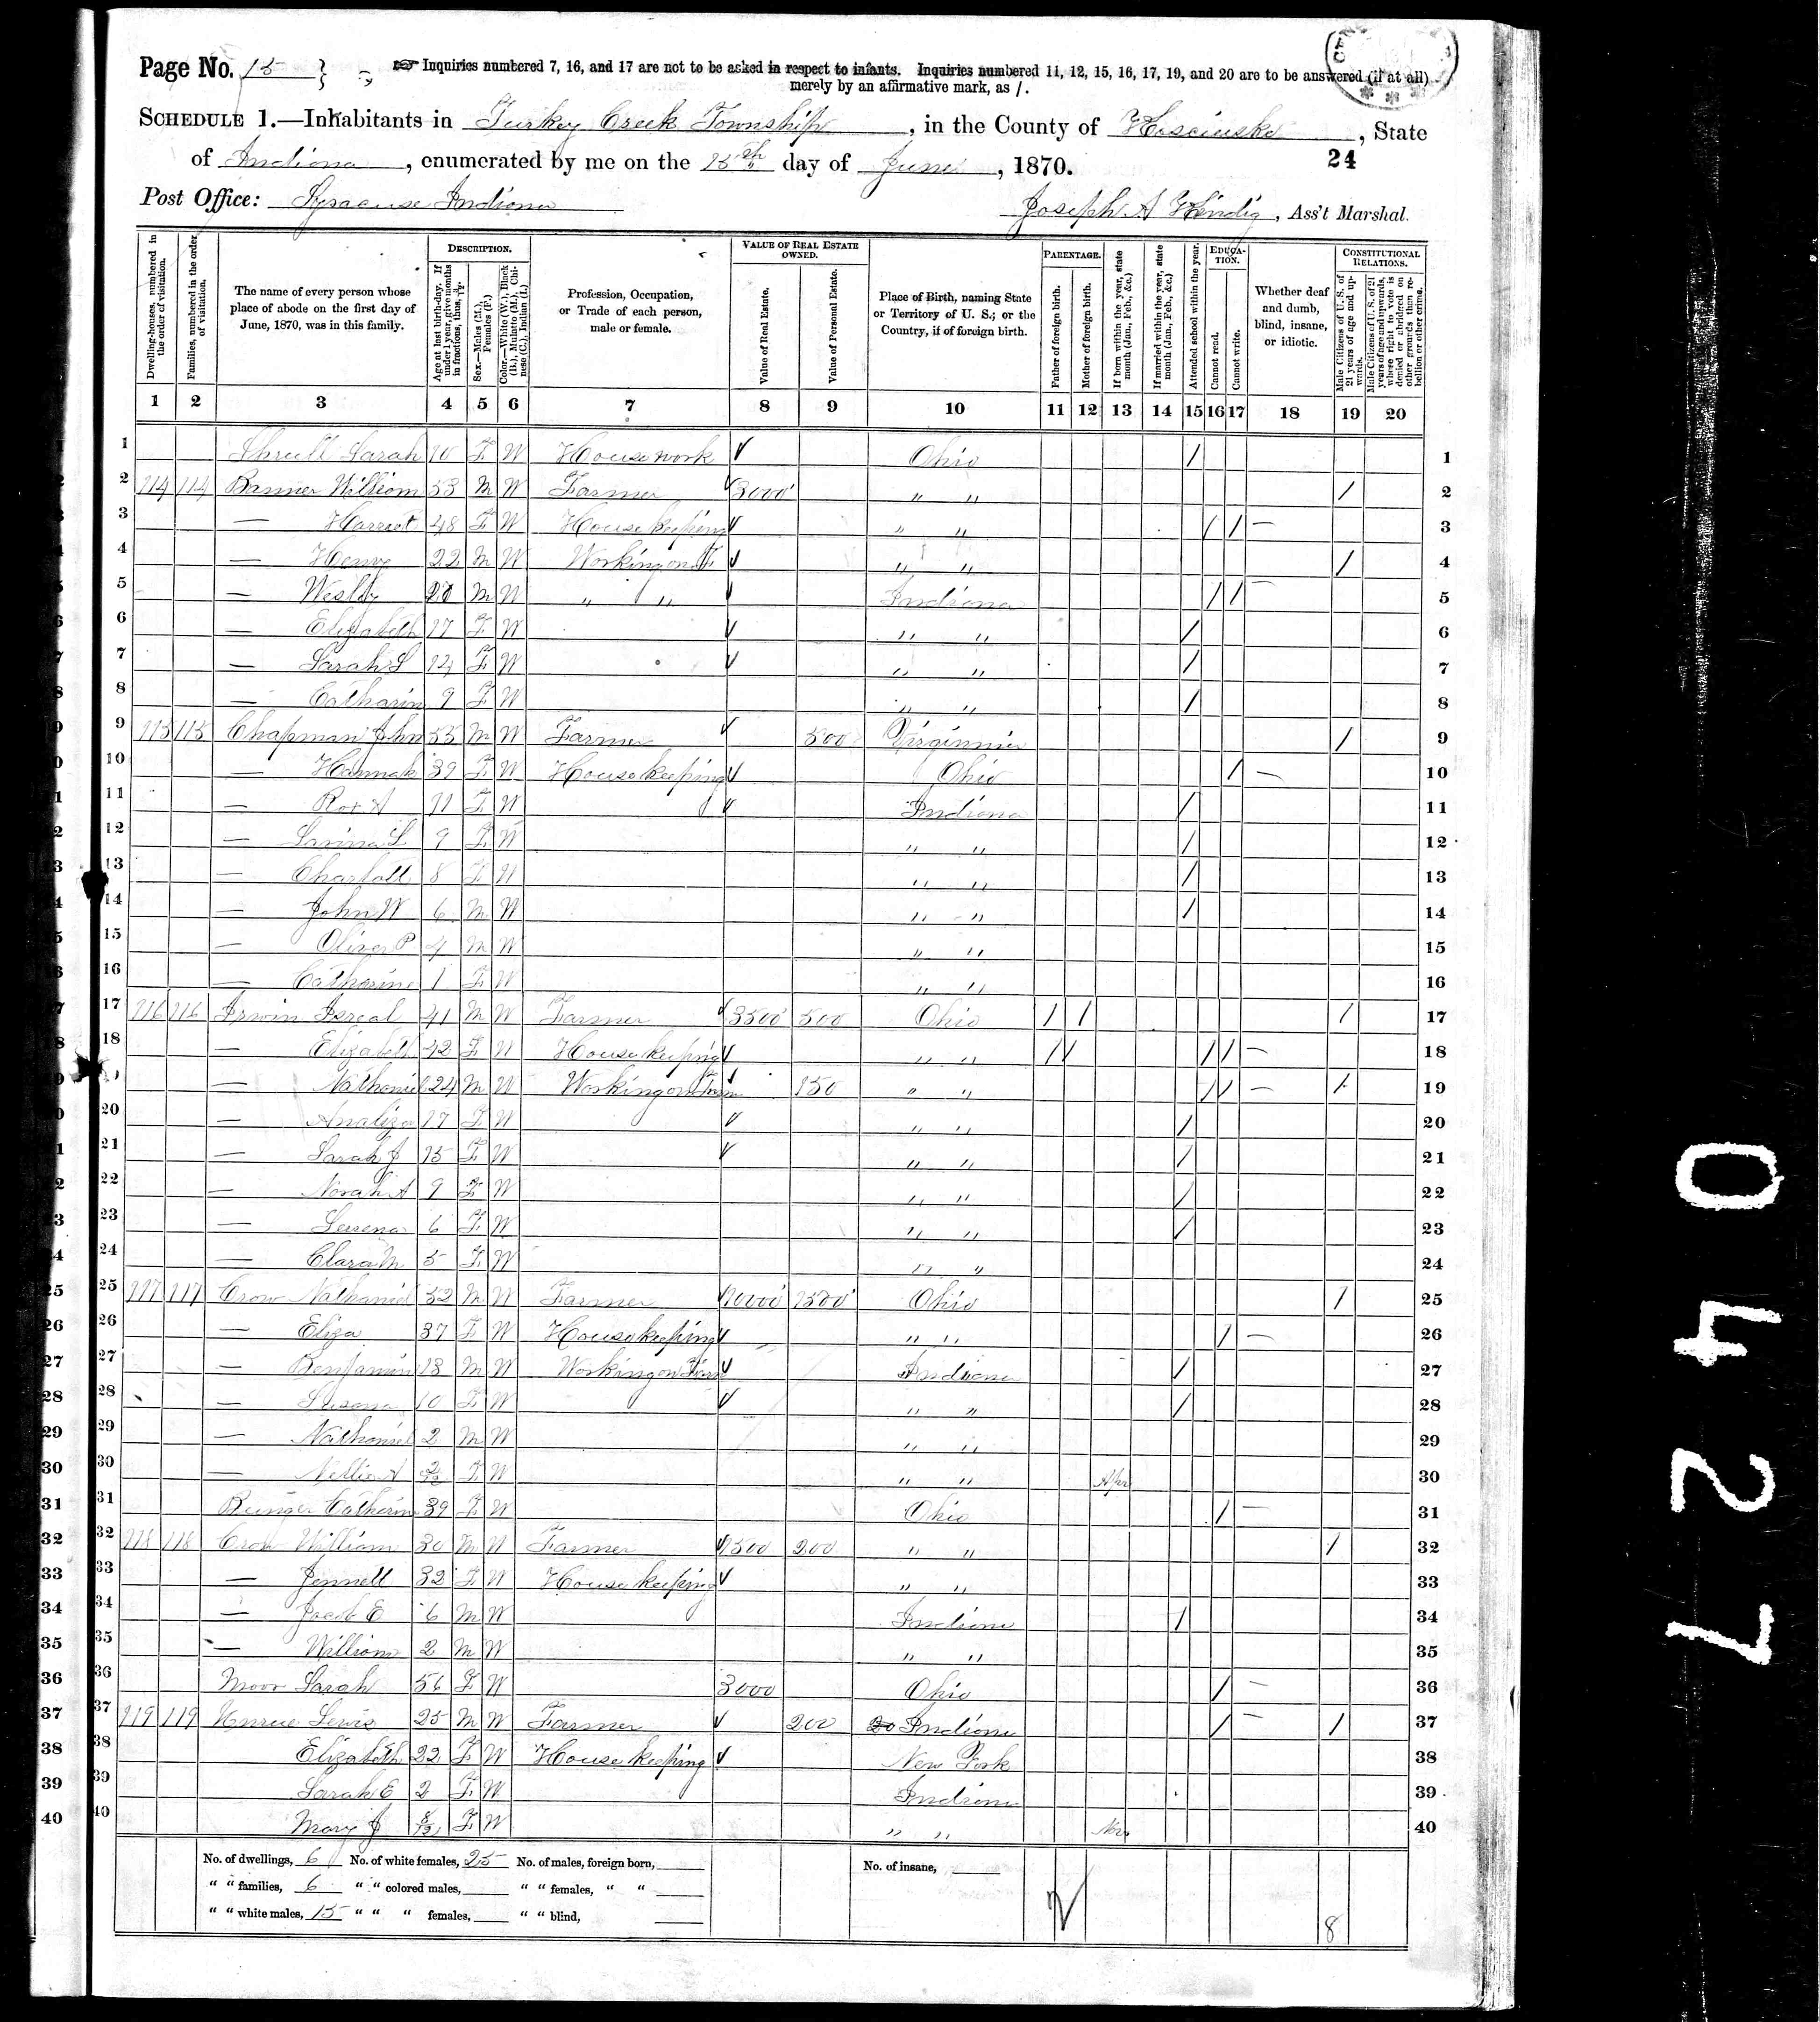 Page No. 15
Inquiries numbered 7, 16, and 17 are not to be asked in respect to infants. Inquiries numbered 11, 12, 15, 16, 17, 19, and 20 are to be answered (if at all)
merely by an affirmative mark, as /.
SCHEDULE 1.—Inhabitants in Turkey Creek Township, in the County of Kosciusko, State
of Indiana, enumerated by me on the 15th day of June, 1870.
24
Post Office: Syracuse Indiana
Joseph A , Ass't Marshal.
Dwelling-houses, numbered in the order of visitation.
Families, numbered in the order of visitation.
The name of every person whose place of abode on the first day of June, 1870, was in this family.
DESCRIPTION.
Age at last birth-day. If under 1 year, give months in fractions, thus, 3/12.
Sex.—Males (M.), Females (F.)
Color.—White (W.), Black (B.), Mulatto (M.), Chinese (C.), Indian (I.)
Profession, Occupation, or Trade of each person, male or female.
VALUE OF REAL ESTATE OWNED.
Value of Real Estate.
Value of Personal Estate.
Place of Birth, naming State or Territory of U. S.; or the Country, if of foreign birth.
PARENTAGE.
Father of foreign birth.
Mother of foreign birth.
If born within the year, state month (Jan., Feb., &c.)
If married within the year, state month (Jan., Feb., &c.)
Attended school within the year.
EDUCATION.
Cannot read.
Cannot write.
Whether deaf and dumb, blind, insane, or idiotic.
CONSTITUTIONAL RELATIONS.
Male Citizens of U. S. of 21 years of age and upwards.
Male Citizens of U. S. of 21 years of age and upwards, where right to vote is denied or abridged on other grounds than rebellion or other crime.
1 2 3 4 5 6 7 8 9 10 11 12 13 14 15 16 17 18 19 20
1 Sarah 10 F W Housework Ohio / 1
2 114 114 William 53 M W Farmer 3000 " " / 2
3 — Harriet 48 F W Housekeeping " " / / — 3
4 — Henry 22 M W Working on F " " / 4
5 — Wesley M W " " Indiana / / — 5
6 — Elizabeth 17 F W " " / 6
7 — Sarah L 14 F W " " / 7
8 — Catharin 9 F W " " / 8
9 115 115 Chapman John 53 M W Farmer 500 Virginnia / 9
10 — Hannah 39 F W Housekeeping Ohio / — 10
11 — Rox A 11 F W Indiana / 11
12 — L 9 F W " " / 12
13 — Charlott 8 F W " " / 13
14 — John W 6 M W " " / 14
15 — Oliver P 4 M W " " 15
16 — Catharine 1 F W " " 16
17 116 116 Irwin Isreal 41 M W Farmer 3500 500 Ohio / / / 17
18 — Elizabeth 42 F W Housekeeping " " / / / / — 18
19 — Nathaniel 24 M W Working on Farm 150 " " / / — / 19
20 — Analiza 17 F W " " / 20
21 — Sarah J 15 F W " " / 21
22 — Norah A 9 F W " " / 22
23 — 6 F W " " / 23
24 — Clara M 5 F W " " 24
25 117 117 Crow Nathaniel 52 M W Farmer 10000 1500 Ohio / 25
26 — Eliza 37 F W Housekeeping " " / — 26
27 — Benjamin 13 M W Working on Farm Indiana / 27
28 — Susana 10 F W " " / 28
29 — Nathaniel 2 M W " " 29
30 — Nellie A 2/12 F W " " Apr 30
31 Catherin 39 F W Ohio / — 31
32 118 118 Crow William 30 M W Farmer 1500 200 " " / 32
33 — Jennell 32 F W Housekeeping " " 33
34 — Jacob E 6 M W Indiana / 34
35 — William 2 M W " " 35
36 Moor Sarah 56 F W 3000 Ohio / — 36
37 119 119 Unrue Lewis 25 M W Farmer 200 Indiana / — / 37
38 Elizabeth 22 F W Housekeeping New York 38
39 Sarah E 2 F W Indiana 39
40 Mary J 8/12 F W " " Nov 40
No. of dwellings, 6 No. of white females, 25 No. of males, foreign born, No. of insane,
" " families, 6 " " colored males, " " females, " "
" " white males, 15 " " " females, " " blind,
8
0427